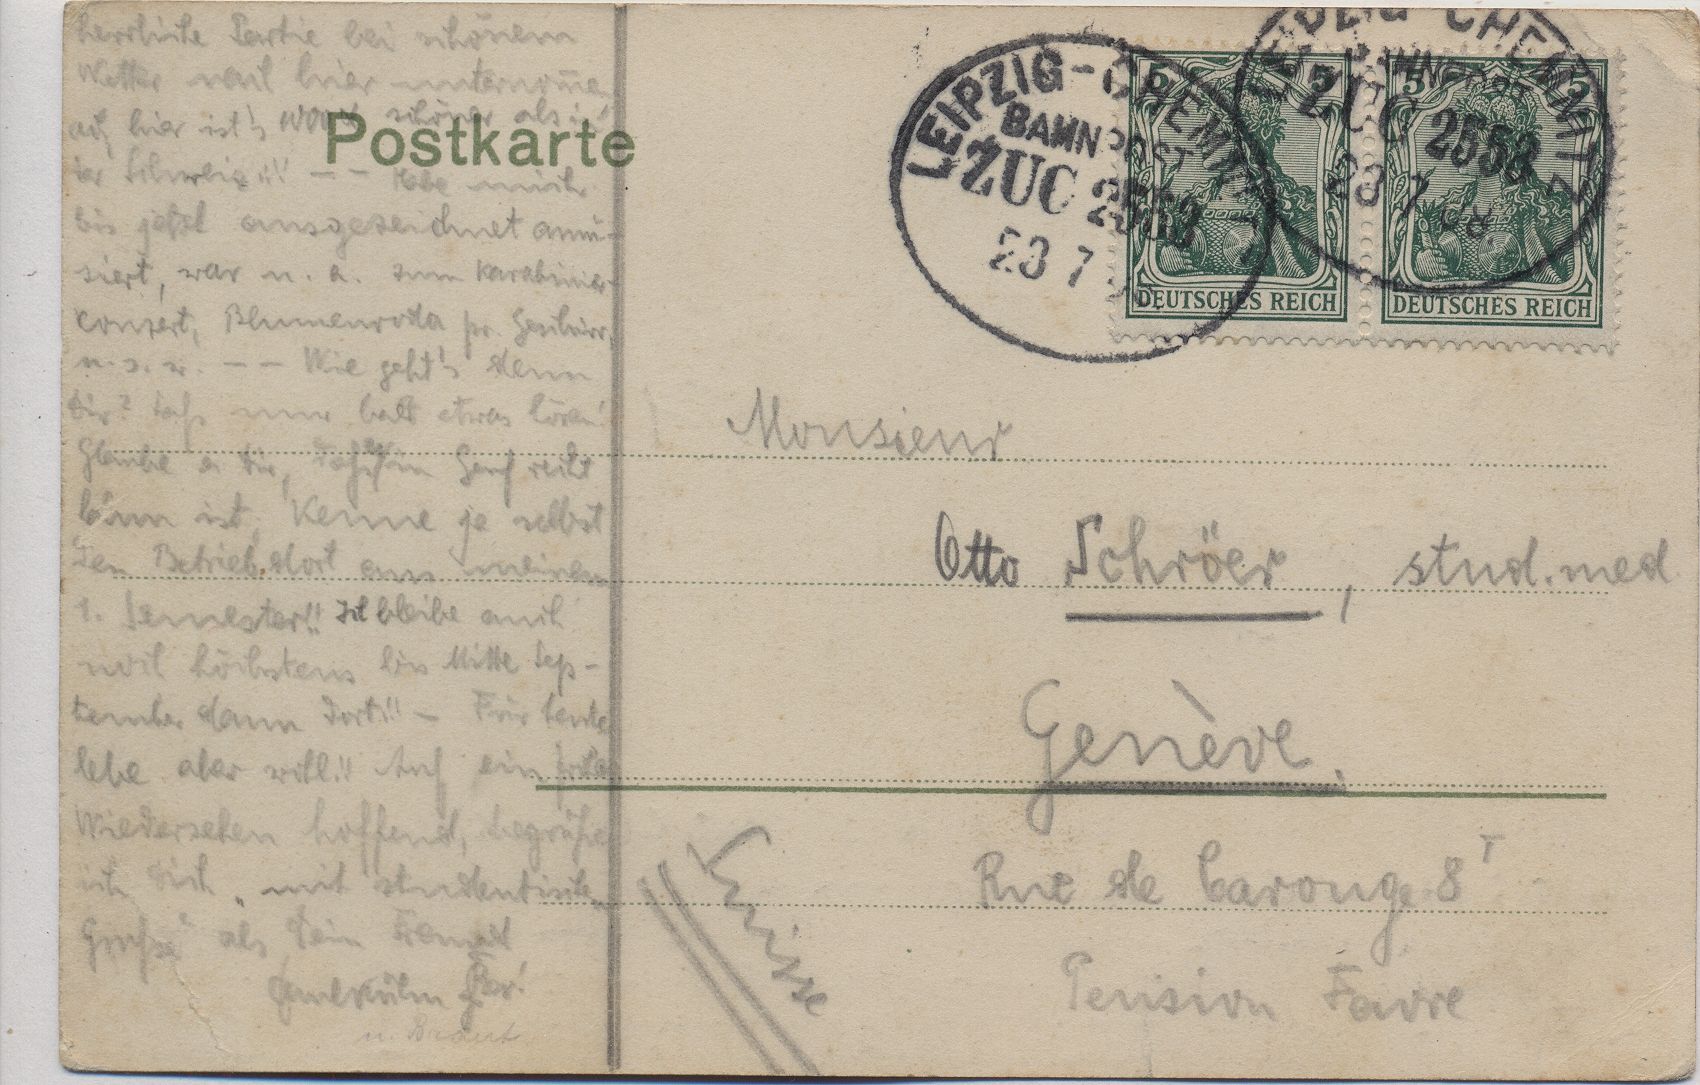 herrliche Partie bei schönem
Wetter nach hier unternomen
auch hier ist's schöner als in
der Schweiz!!! -- Habe mich
bis jetzt ausgezeichnet amü-
siert, war u. a. zum Karabinier-
konzert, Blumenroda pr. Geschirr,
u. s. w. -- Wie geht's denn
Dir? Laß nur bald etwas hören!
Glaube es Dir, daß es in Genf recht
ist, Kenne ja selbst
den Betrieb dort aus meinem
1. Semester!! Ich bleibe auch
noch höchstens bis Mitte Sep-
tember dann dort!! - Für heute
lebe aber wohl!! Auf ein
Wiedersehen hoffend, begrüße
ich Dich "mit studentischem
Gruße" als Dein Freund
u. Braut
Postkarte
LEIPZIG-CHEMNITZ
BAHNPOST
ZUG 2553
23 7
LEIPZIG-CHEMNITZ
BAHNPOST
ZUG 2553
23 7 08
5 5
DEUTSCHES REICH
5 5
DEUTSCHES REICH
Monsieur
Otto Schröer, stud. med
Genève.
Rue de Carouge 8 I
Pension Favre
Suisse